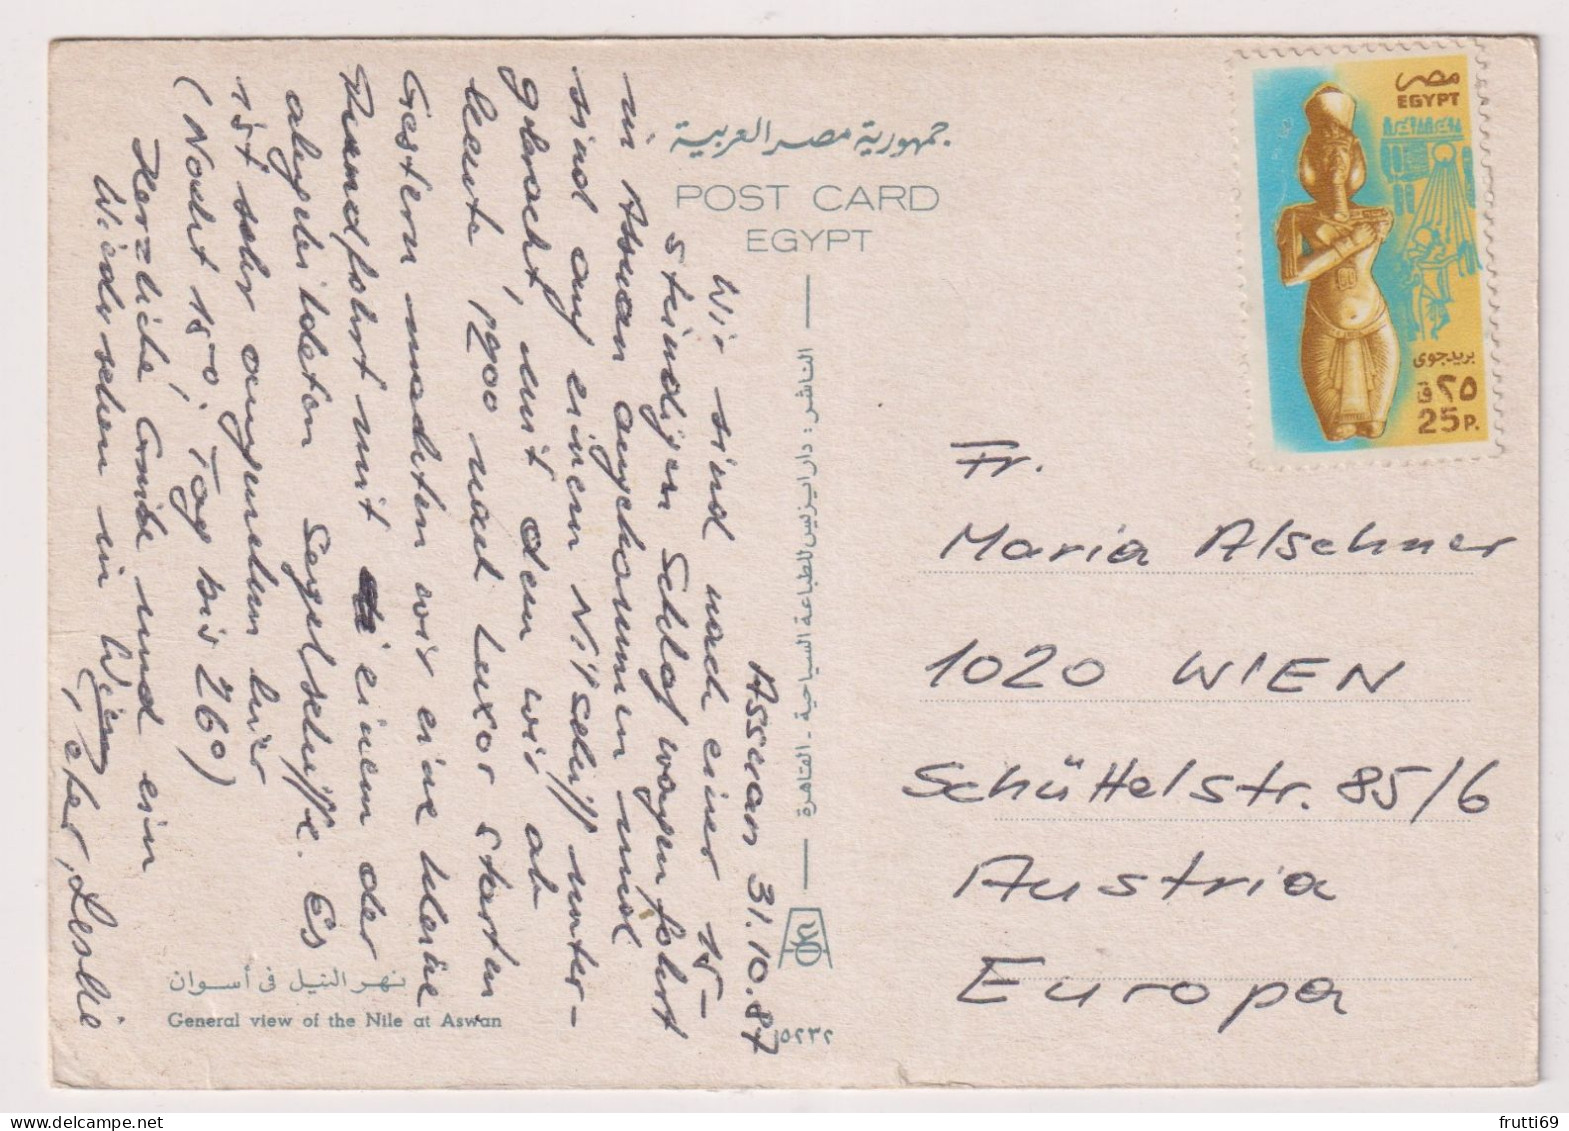 جمهورية مصر العربية
POST CARD
EGYPT
مصر
EGYPT
بريد جوى
٢٥ ق
25 P.
Assuan 31.10.87
Wir sind nach einer 15-
stündigen Schlafwagenfahrt
in Assuan angekommen und
sind auf einem Nilschiff unter-
gebracht, mit dem wir ab
heute 1900 nach Luxor starten
Gestern machten wir eine kleine
Rundfahrt mit einem der
abgebildeten Segelschiffe. Es
ist sehr angenehm hier
(Nacht 15°, Tag bis 26°)
Herzliche Grüße und ein
Wiedersehen in Wien
Peter, Leslie
Fr.
Maria Alschner
1020 WIEN
Schüttelstr. 85/6
Austria
Europa
الناشر : دار ايزيس للطباعة السياحية - القاهرة
١٥٢٣٢
نهر النيل فى أسوان
General view of the Nile at Aswan
frutti69